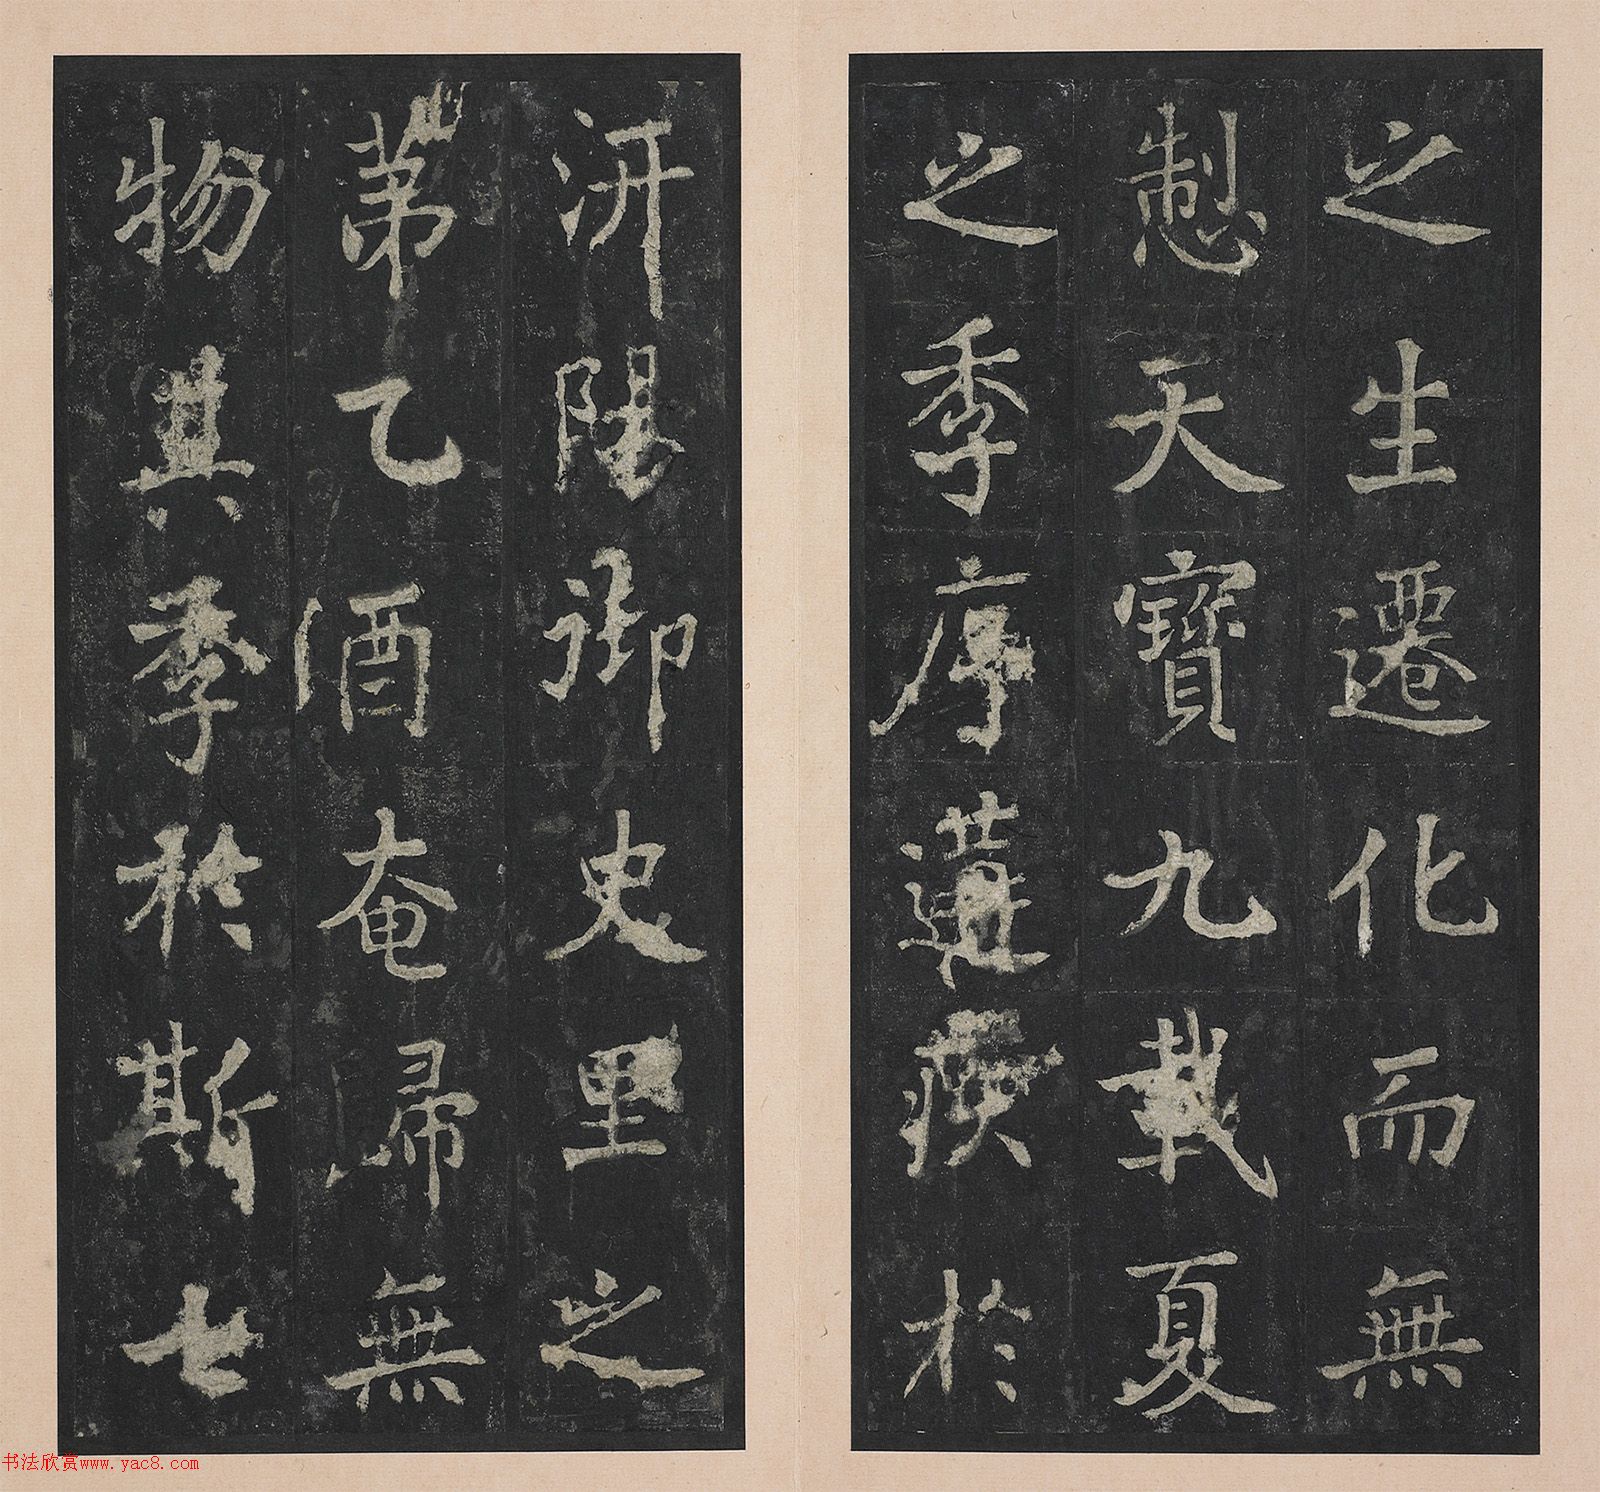 之生遷化而無
天寶九載夏
之季序遘疾於
汧陽御史里之
第乙酉奄歸無
物其季於斯七
书法欣赏www.yac8.com